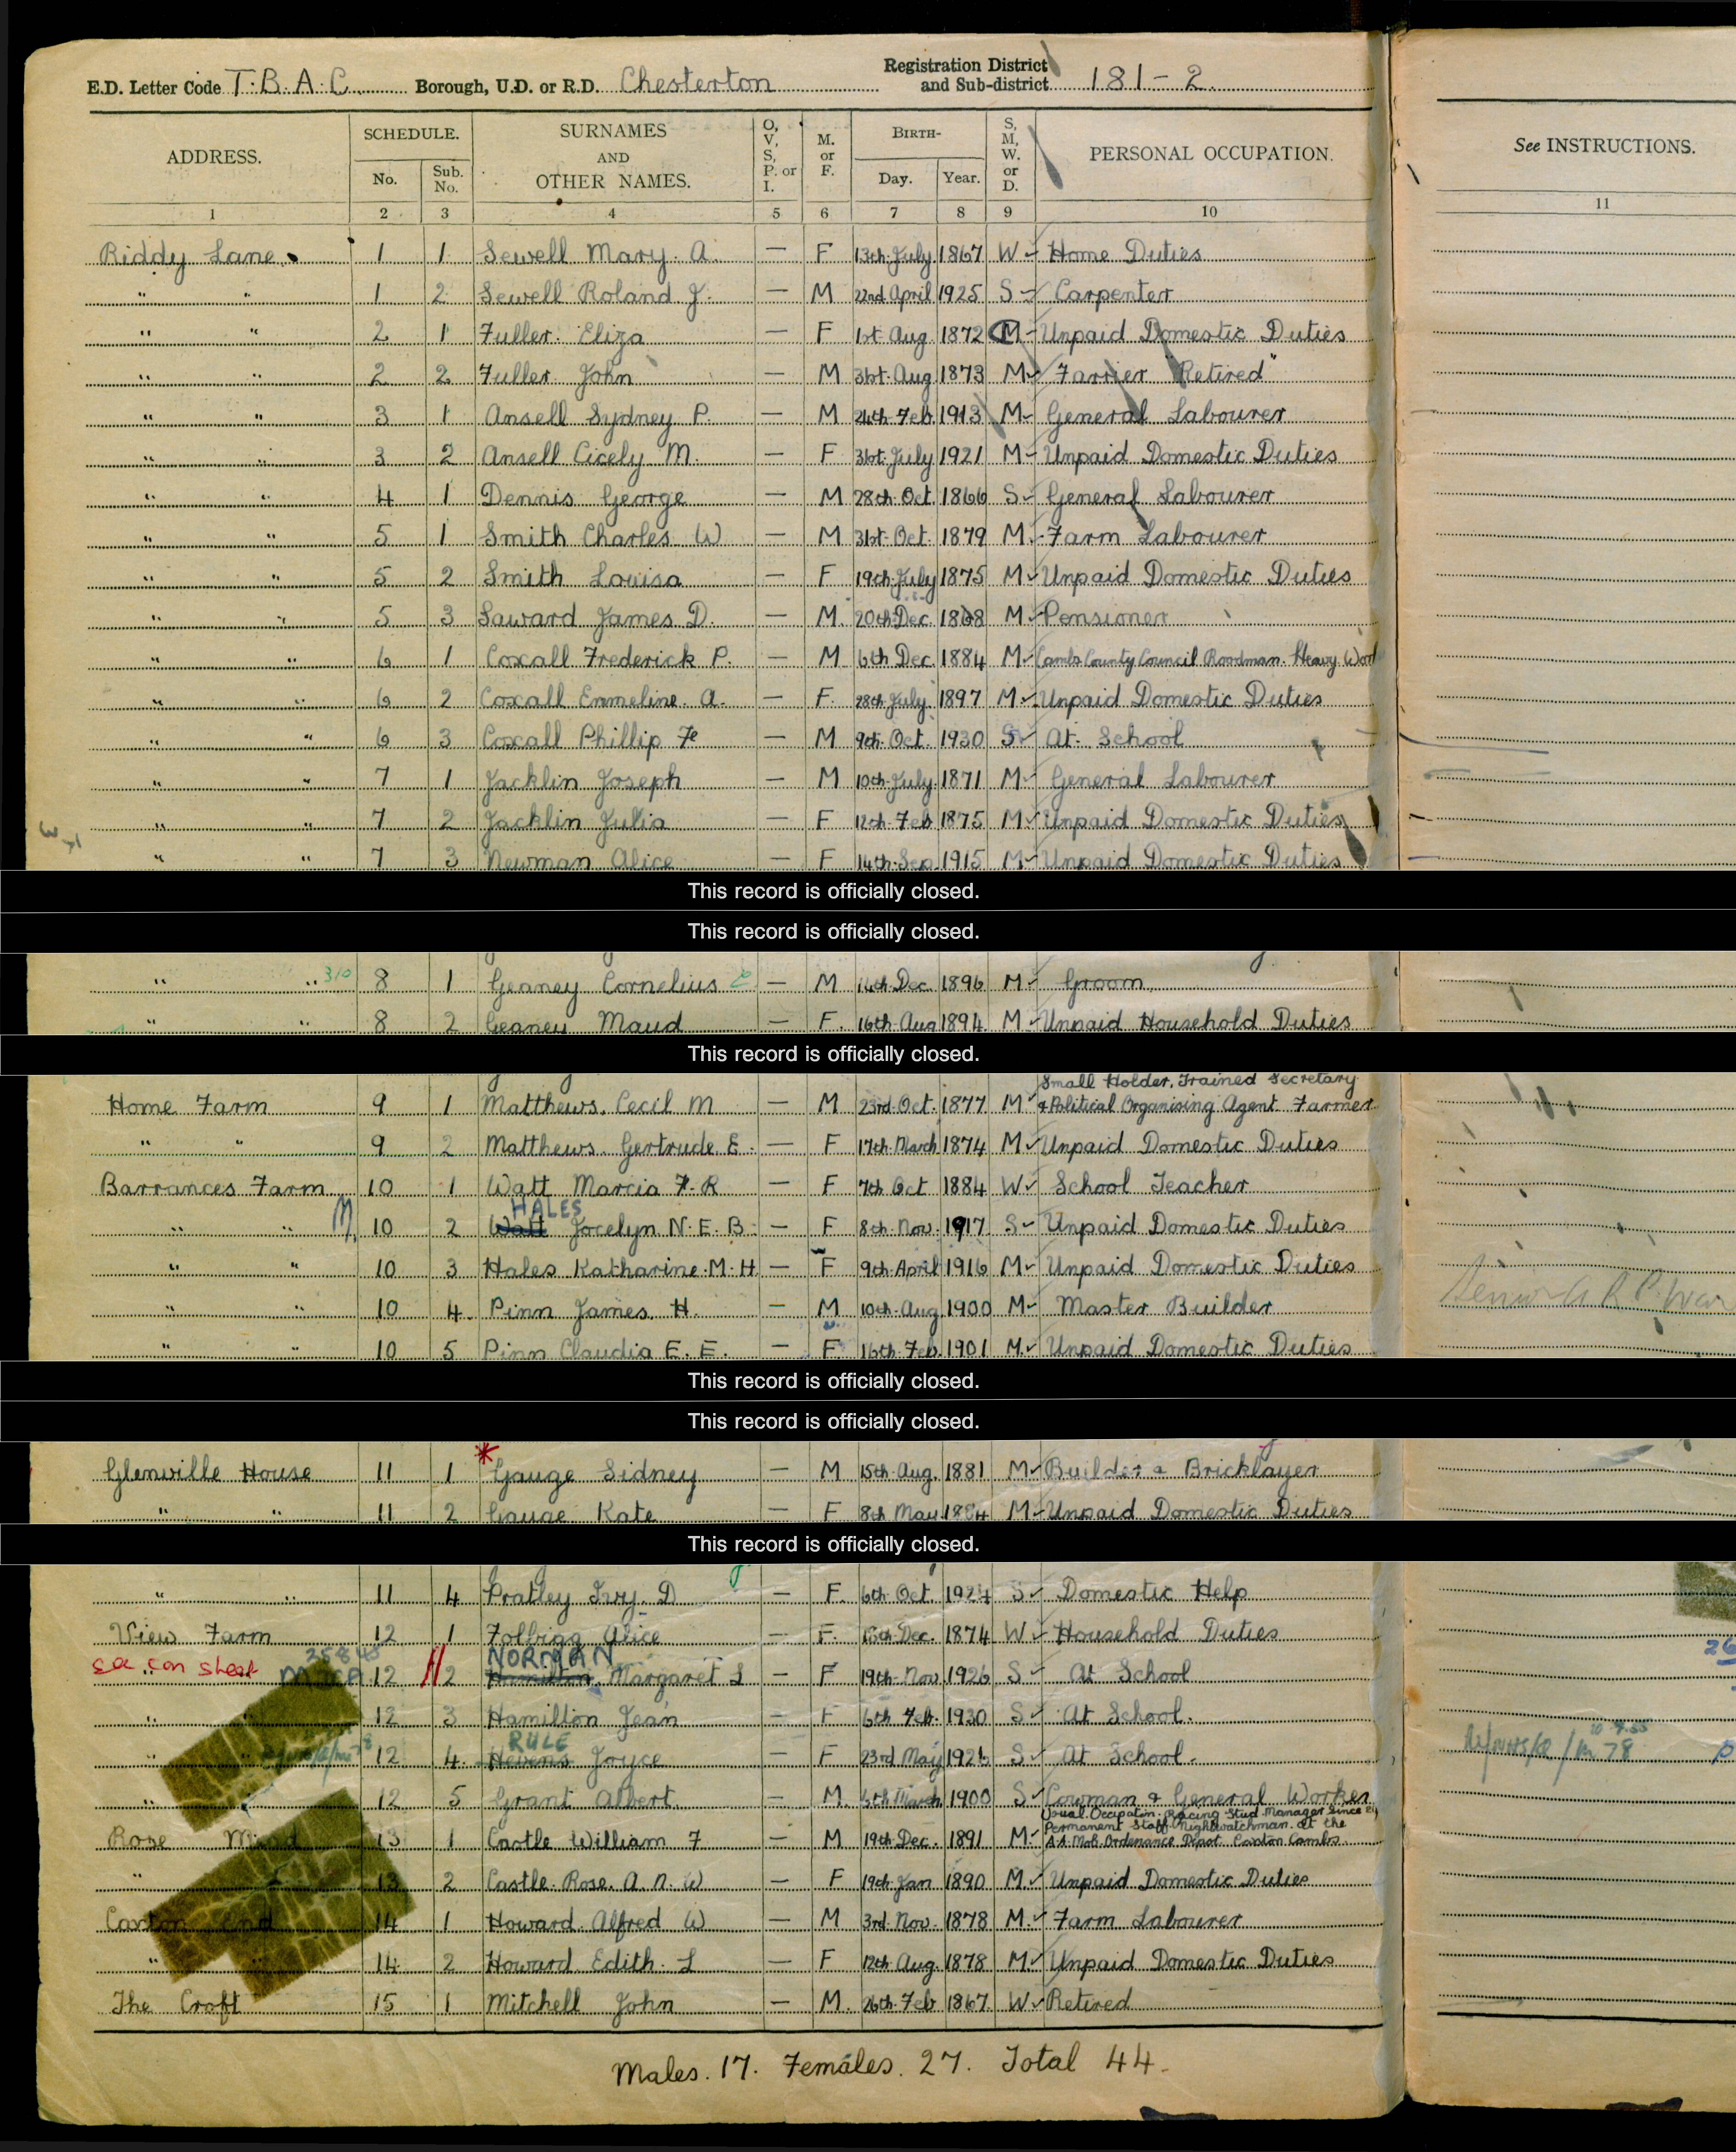 E.D. Letter Code T.B.A.C. Borough, U.D. or R.D. Chesterton Registration District and Sub-district 181-2.
ADDRESS. SCHEDULE. No. Sub. No. SURNAMES AND OTHER NAMES. O, V, S, P. or I. M. or F. BIRTH- Day. Year. S, M, W. or D. PERSONAL OCCUPATION. See INSTRUCTIONS.
1 2 3 4 5 6 7 8 9 10 11
Riddy Lane 1 1 Sewell Mary. A. — F 13th July 1867 W Home Duties
" " 1 2 Sewell Roland J. — M 22nd April 1925 S Carpenter
" " 2 1 Fuller. Eliza — F 1st Aug 1872 M Unpaid Domestic Duties
" " 2 2 Fuller John — M 31st Aug 1873 M Farrier "Retired"
" " 3 1 Ansell Sydney P. — M 24th Feb 1913 M General Labourer
" " 3 2 Ansell Cicely M. — F 31st July 1921 M Unpaid Domestic Duties
" " 4 1 Dennis George — M 28th Oct 1866 S General Labourer
" " 5 1 Smith Charles W — M 31st Oct. 1879 M Farm Labourer
" " 5 2 Smith Louisa — F 19th July 1875 M Unpaid Domestic Duties
" " 5 3 Saward James D. — M. 20th Dec. 1868 M Pensioner
" " 6 1 Coxall Frederick P. — M 6th Dec. 1884 M Cambs County Council Roadman. Heavy Work
" " 6 2 Coxall Emmeline. A. — F. 28th July 1897 M Unpaid Domestic Duties
" " 6 3 Coxall Phillip Fe — M 9th Oct. 1930 S At School
" " 7 1 Jacklin Joseph — M 10th July 1871 M General Labourer
" " 7 2 Jacklin Julia — F 12th Feb 1875 M Unpaid Domestic Duties
" " 7 3 Newman Alice — F 14th Sep 1915 M Unpaid Domestic Duties
This record is officially closed.
This record is officially closed.
" " 310 8 1 Geaney Cornelius — M 14th Dec 1896 M Groom
" " 8 2 Geaney Maud — F. 16th Aug 1894 M Unpaid Household Duties
This record is officially closed.
Small Holder, Trained Secretary
Home Farm 9 1 Matthews. Cecil M — M 23rd Oct. 1877 M & Political Organising Agent Farmer
" " 9 2 Matthews Gertrude. E. — F 17th March 1874 M Unpaid Domestic Duties
Barrances Farm 10 1 Watt Marcia F. R — F 7th Oct 1884 W School Teacher
HALES
" " M 10 2 Watt Jocelyn N. E. B. — F 8th Nov. 1917 S Unpaid Domestic Duties
" " 10 3 Hales Katharine. M. H — F 9th April 1916 M Unpaid Domestic Duties
" " 10 4. Pinn James H. — M 10th Aug 1900 M Master Builder Senior A R P. War
" " 10 5 Pinn Claudia E. E. — F 16th Feb 1901 M Unpaid Domestic Duties
This record is officially closed.
This record is officially closed.
Glenville House 11 1 * Gauge Sidney — M 15th Aug. 1881 M Builder & Bricklayer
" " 11 2 Gauge Kate — F 8th May 1884 M Unpaid Domestic Duties
This record is officially closed.
" " 11 4 Pratley Ivy. D — F. 6th Oct. 1924 S Domestic Help
View Farm 12 1 Folbigg Alice — F. 15th Dec. 1874 W Household Duties
NORMAN
see con sheet 12 2 Hamilton Margaret L — F 19th Nov 1926 S At School
" 12 3 Hamilton Jean — F 6th Feb. 1930 S At School.
RULE
" 12 4. Hevens Joyce — F 23rd May 1926 S At School.
" 12 5 Grant Albert. — M. March 1900 S Cowman & General Worker
Usual Occupation. Racing Stud Manager Since
Permanent Staff. Nightwatchman. at the
Rose Mead 13 1 Castle William F — M 19th Dec. 1891 M A.A. Mob. Ordenance Depot. Caxton Cambs.
" 13 2 Castle. Rose. A. N. W — F 19th Jan 1890 M Unpaid Domestic Duties
Caxton End 14 1 Howard. Alfred W — M 3rd Nov. 1878 M Farm Labourer
" " 14 2 Howard. Edith. L — F 12th Aug. 1878 M Unpaid Domestic Duties
The Croft 15 1 Mitchell John — M. 26th Feb 1867 W Retired
Males. 17. Females. 27. Total 44.